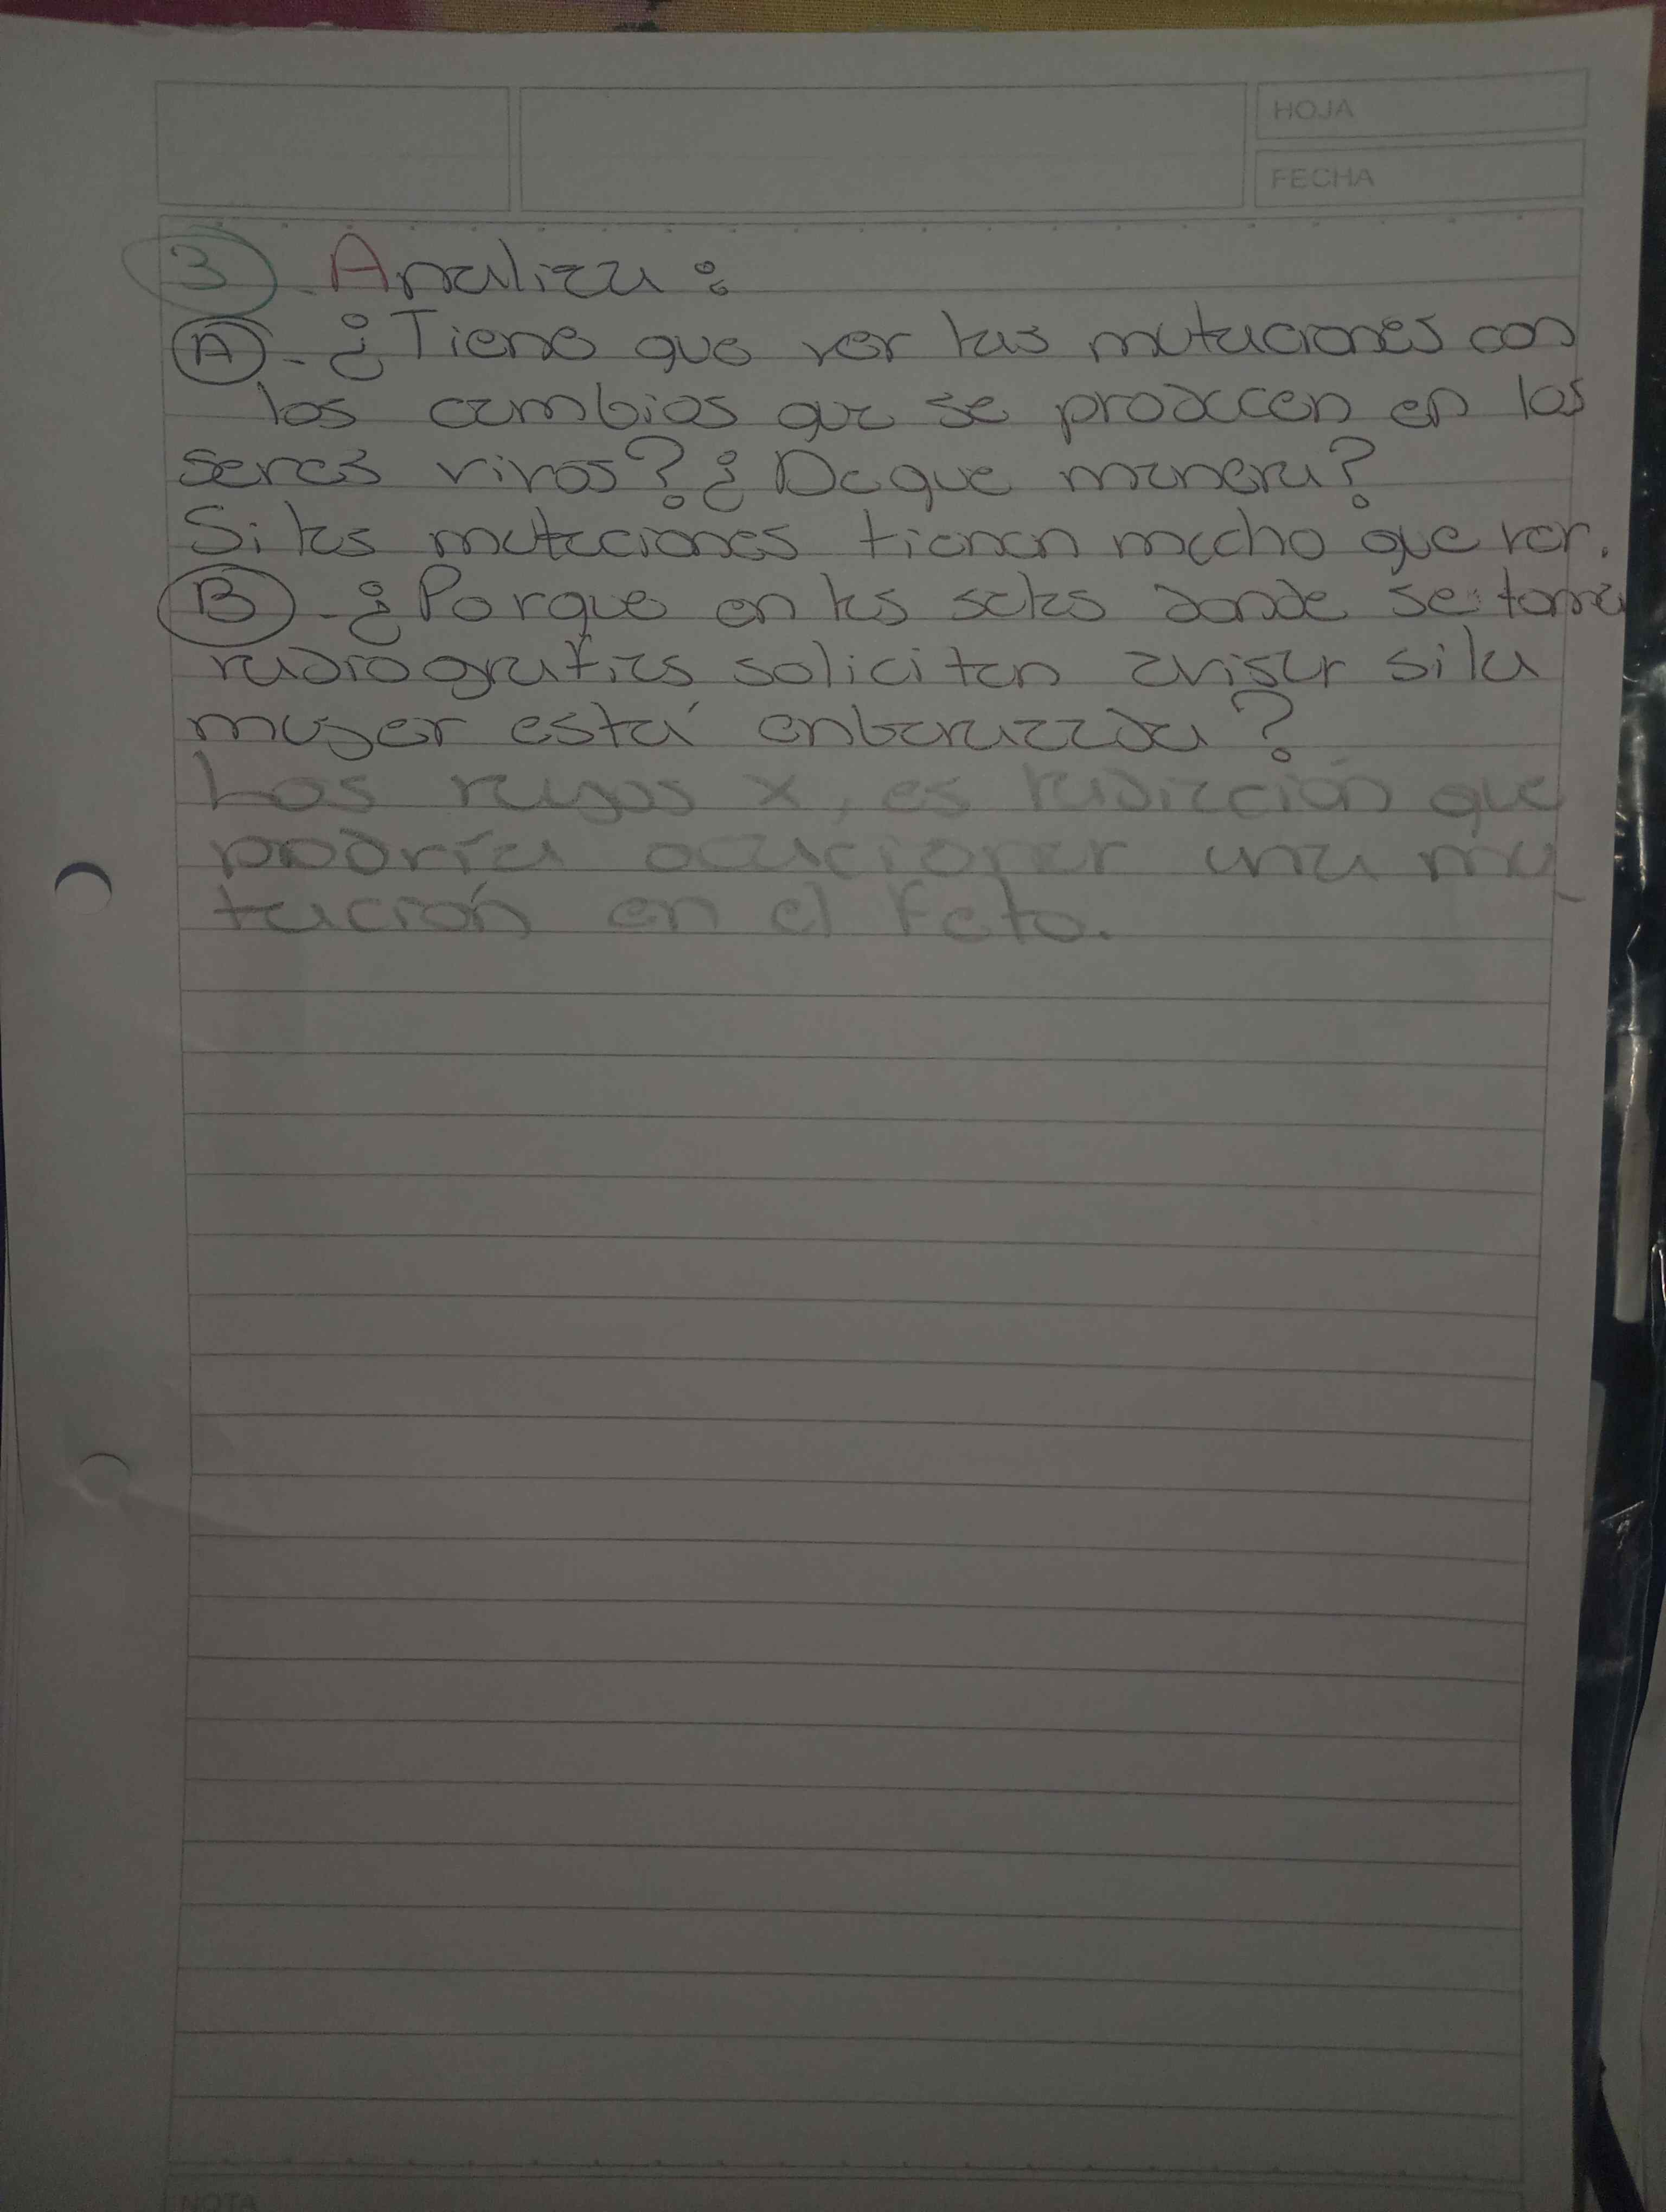 HOJA
FECHA
3. Analiza:
A. ¿Tiene que ver las mutaciones con
los cambios que se producen en los
seres vivos? ¿De que manera?
Si las mutaciones tienen mucho que ver.
B. ¿Porque en las salas donde se toma
radiografias solicitan avisar si la
mujer está enbarazada?
Los rayos x, es radiación que
podría ocacionar una mu_
tación en el feto.
NOTA